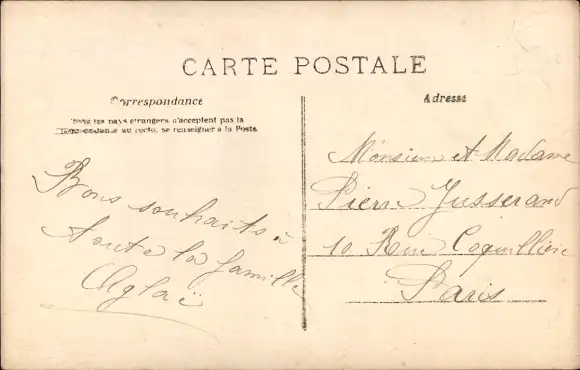 CARTE POSTALE
Correspondance
Tous les pays étrangers n'acceptent pas la
correspondance au recto, se renseigner à la Poste
Bons souhaits à
toute la famille
Aglaë
Adresse
Monsieur et Madame
Pierre Jusserand
10 Rue Coquillière
Paris